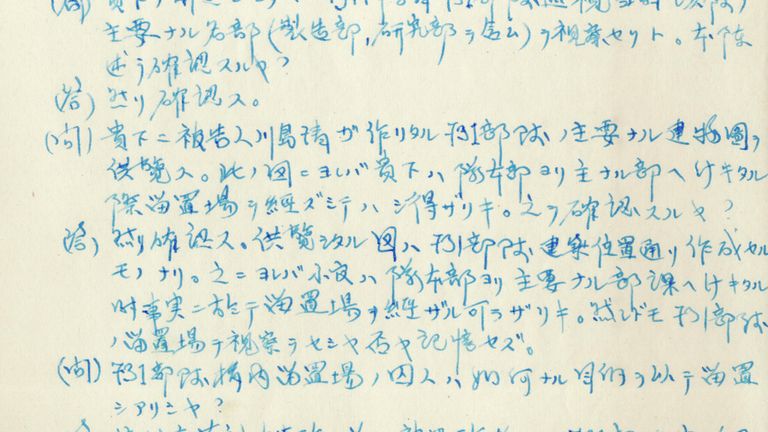 主要ナル各部(製造部,研究部ヲ含ム)ヲ視察セリト。本陳
述ヲ確認スルヤ?
(答) 然リ確認ス。
(問) 貴下ニ被告人川島清ガ作リタル731部隊ノ主要ナル建物図ヲ
供覧ス。此ノ図ニヨレバ貴下ハ隊本部ヨリ主ナル部ヘ行キタル
際留置場ヲ経ズシテハ シ得ザリキ。之ヲ確認スルヤ?
(答) 然リ確認ス。供覧シタル図ハ731部隊建築位置通リ作成セル
モノナリ。之ニヨレバ小官ハ隊本部ヨリ主要ナル部課ヘ行キタル
時事実ニ於テ留置場ヲ経ザル可ラザリキ。然レドモ731部隊
ノ留置場ヲ視察ヲセシヤ否ヤ記憶セズ。
(問) 731部隊構内留置場ノ囚人ハ如何ナル目的ヲ以テ留置
シアリシヤ?